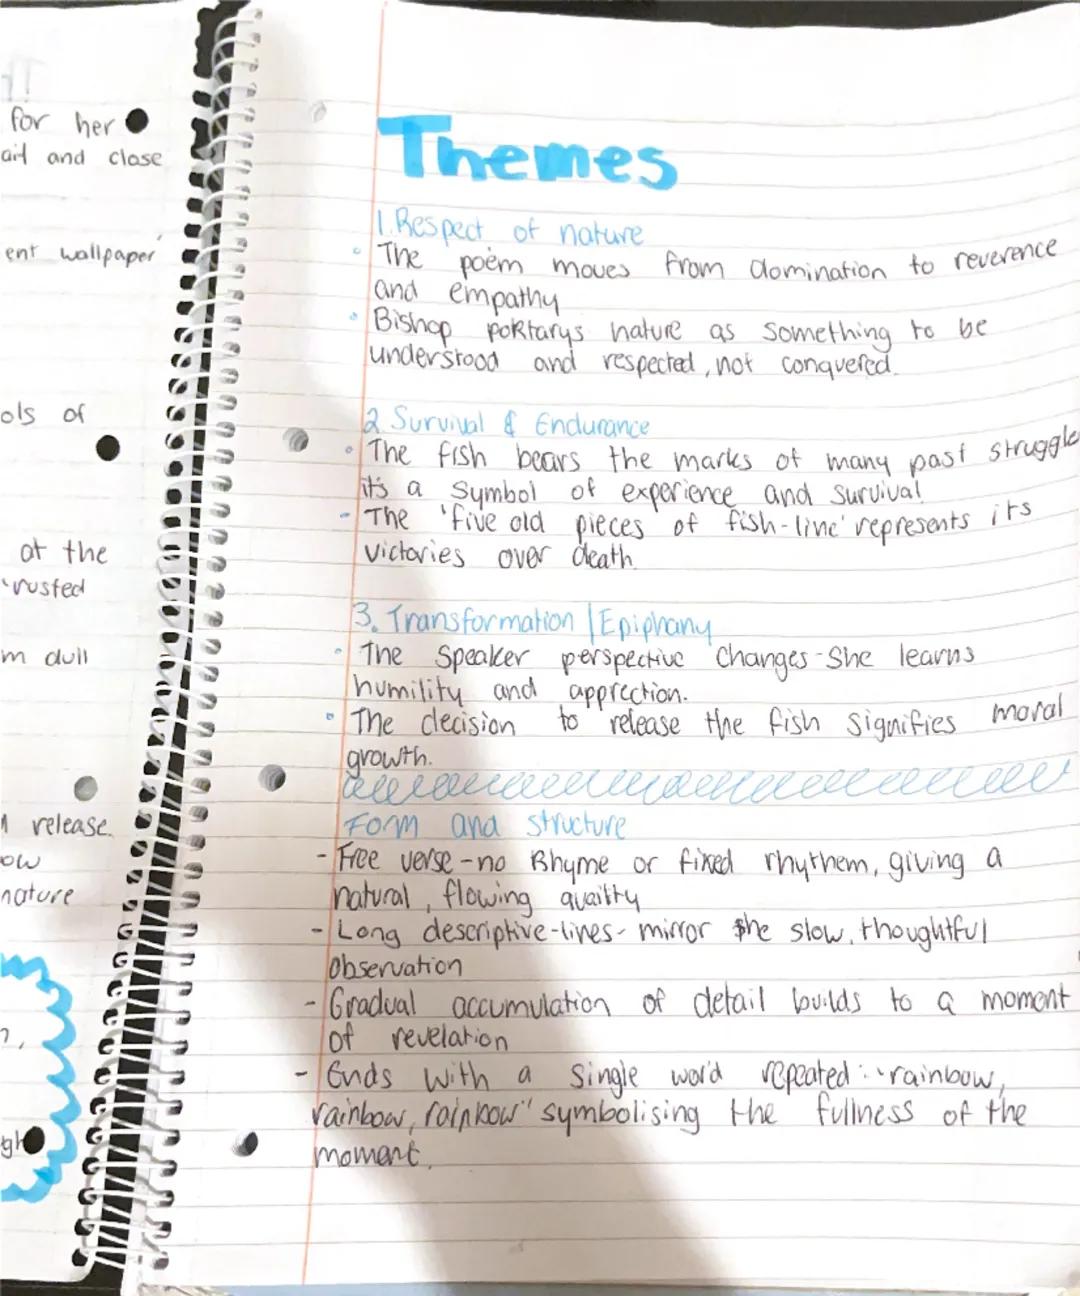 for her
and close
ent wallpaper'
ols of
at the
'rusted
m dull
release.
ow
nature
Themes
1. Respect of nature
The poem moves from domination to reverence
and empathy
Bishop portarys nature as something to be
understood and respected, not conquered.
2 Survival & Endurance
The fish bears the marks of many past struggle
it's a symbol of experience and survival
- The 'five old pieces of fish-line' represents its
victories over death.
3. Transformation | Epiphany
The speaker perspective changes - She learns
humility and apprection.
The decision to release the fish signifies moral
growth.
Form and structure
- Free verse - no Rhyme or fixed rhythem, giving a
natural, flowing quailty
- Long descriptive-lines - mirror the slow, thoughtful
observation
- Gradual accumulation of detail builds to a moment
of revelation
- Ends with a single word repeated: "rainbow,
rainbow, rainbow" symbolising the fullness of the
moment.